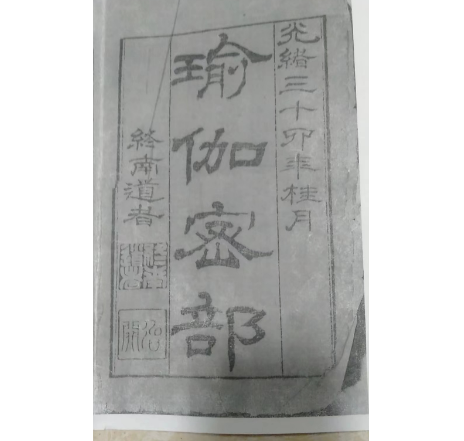 光緒三十卯年桂月
瑜伽密部
終南道者
冶開